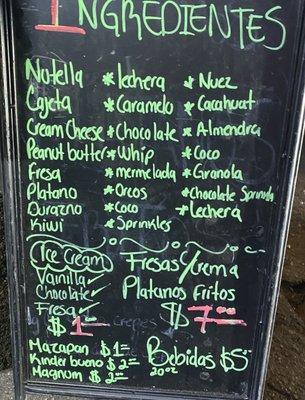 1 INGREDIENTES
Nutella * lechera * Nuez
Cajeta * Caramelo * Cacahuat
Cream Cheese * Chocolate * Almendra
Peanut butter * Whip * Coco
Fresa * mermelada * Granola
Platano * Oreos * Chocolate Sprinkls
Durazno * Coco * Lechera
Kiwi * Sprinkles
Ice Cream
Vainilla ✓
Chocolate ✓
Fresa ✓
$ 1
Fresas y/crema
Platanos Fritos
$ 7
Mazapan $ 1
Kinder bueno $ 2
Magnum $ 2
Bebidas $5
20 oz